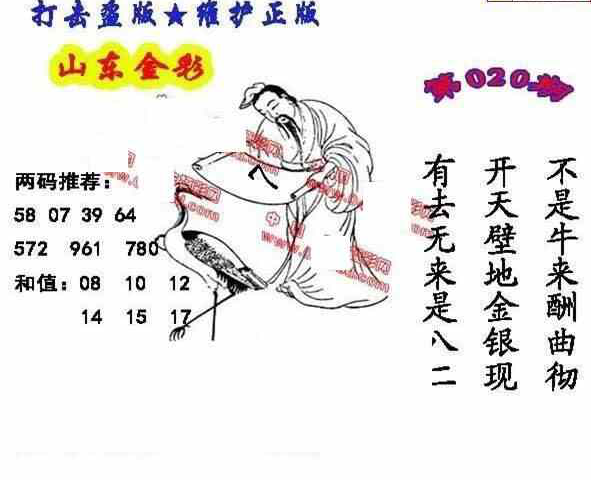 打击盗版★维护正版
山东金彩
第020期
两码推荐：
58 07 39 64
572 961 780
和值：08 10 12
14 15 17
不是牛来酬曲彻
开天壁地金银现
有去无来是八二